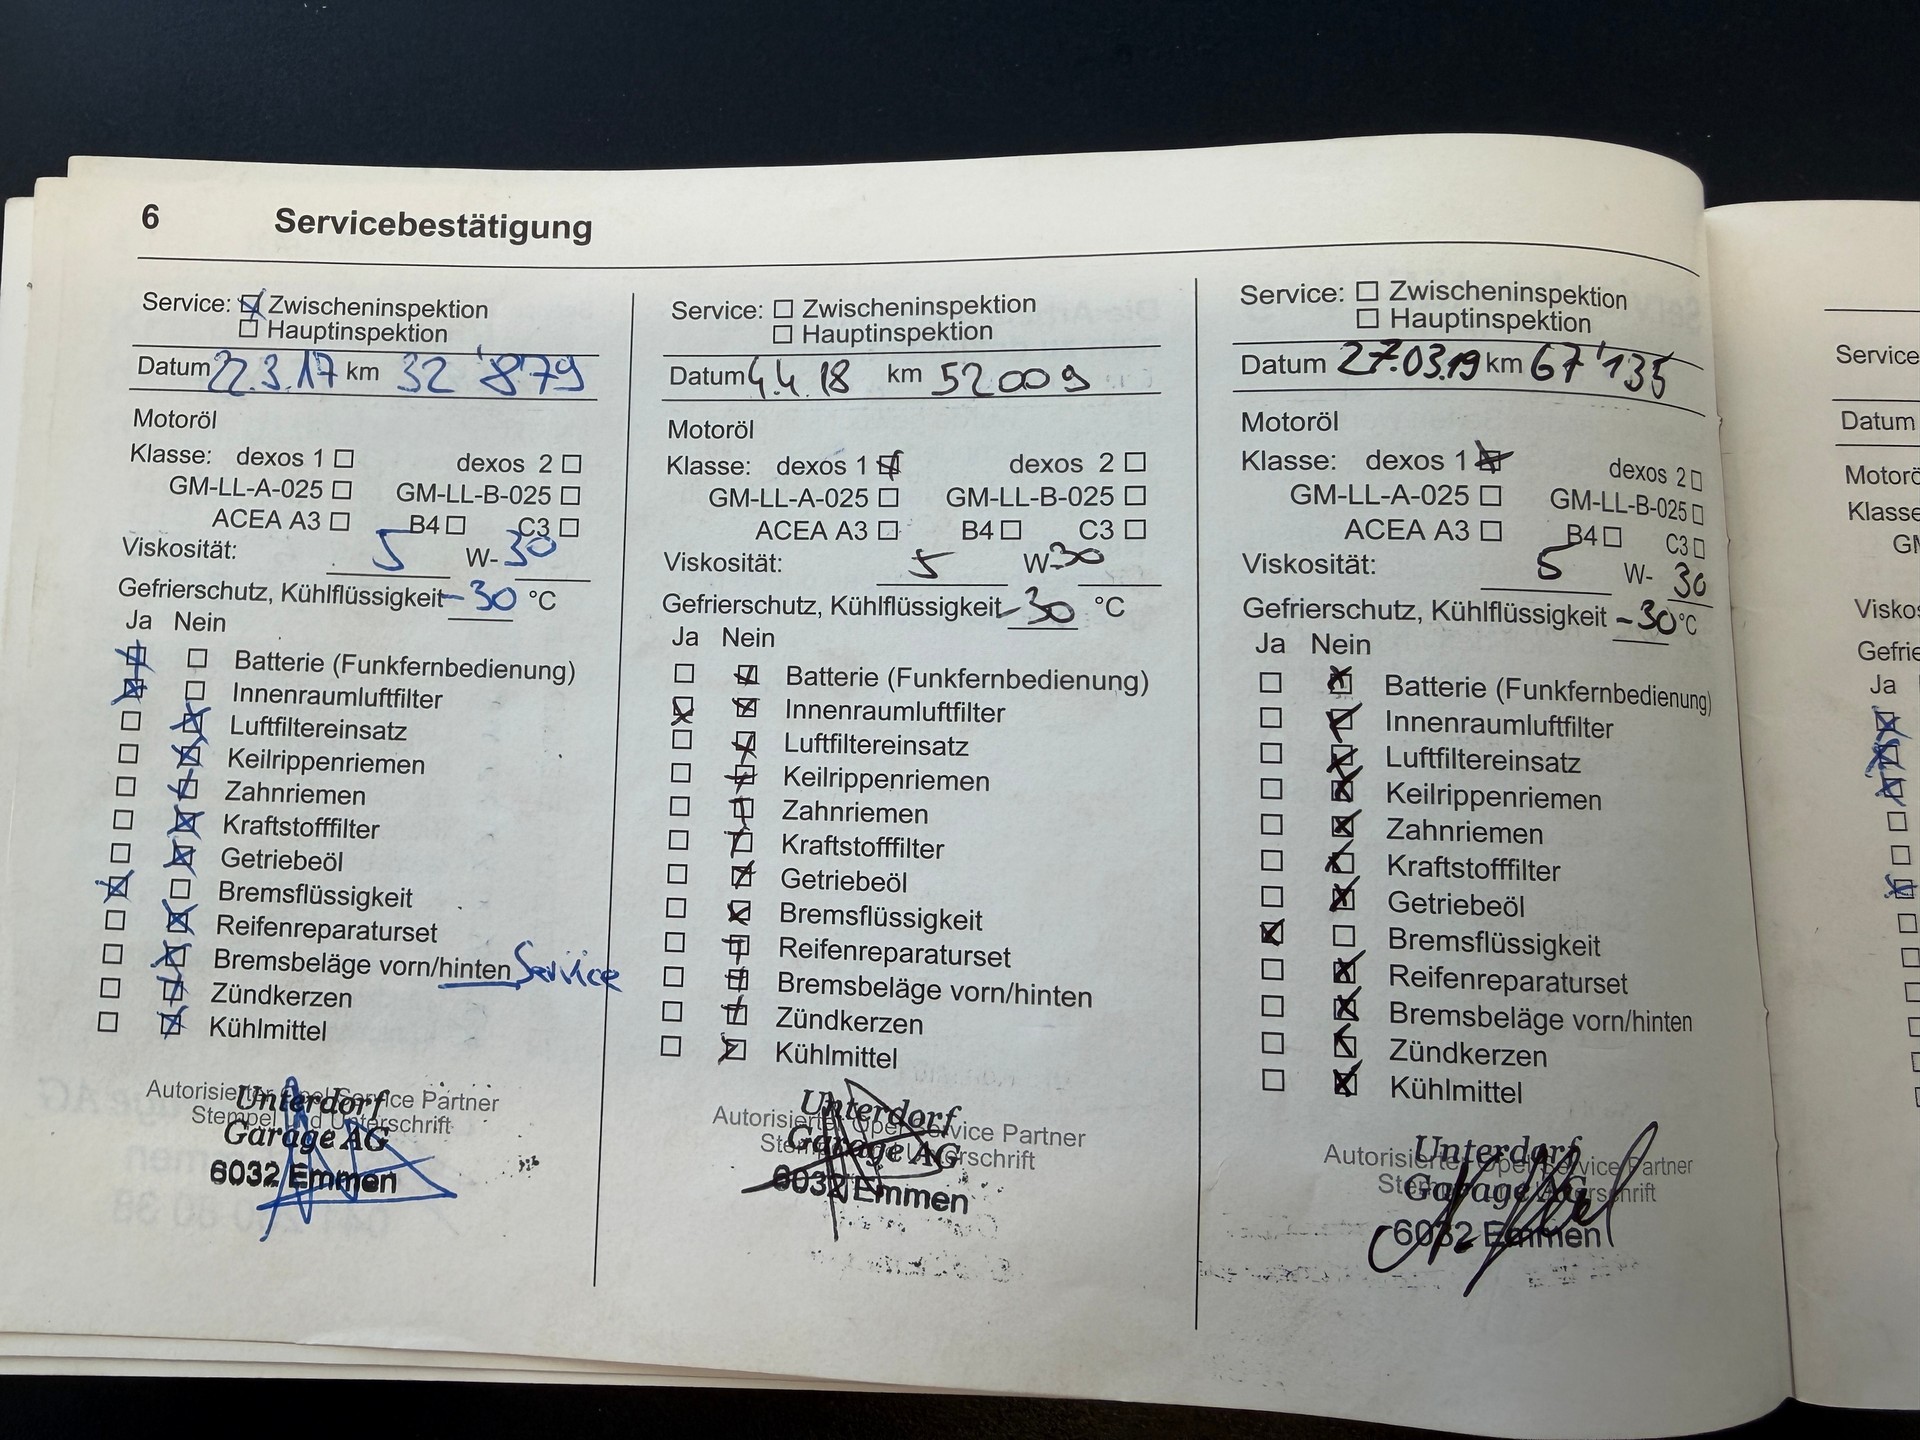 6 Servicebestätigung
Service: ☒ Zwischeninspektion
☐ Hauptinspektion
Datum 22.3.17 km 32'879
Motoröl
Klasse: dexos 1 ☐ dexos 2 ☐
GM-LL-A-025 ☐ GM-LL-B-025 ☐
ACEA A3 ☐ B4 ☐ C3 ☐
Viskosität: 5 W-30
Gefrierschutz, Kühlflüssigkeit -30 °C
Ja Nein
☒ ☐ Batterie (Funkfernbedienung)
☒ ☐ Innenraumluftfilter
☐ ☒ Luftfiltereinsatz
☐ ☒ Keilrippenriemen
☐ ☒ Zahnriemen
☐ ☒ Kraftstofffilter
☐ ☒ Getriebeöl
☒ ☐ Bremsflüssigkeit
☐ ☒ Reifenreparaturset
☐ ☒ Bremsbeläge vorn/hinten Service
☐ ☒ Zündkerzen
☐ ☒ Kühlmittel
Autorisierter Opel Service Partner
Stempel und Unterschrift
Unterdorf
Garage AG
6032 Emmen
Service: ☐ Zwischeninspektion
☐ Hauptinspektion
Datum 4.4.18 km 52009
Motoröl
Klasse: dexos 1 ☒ dexos 2 ☐
GM-LL-A-025 ☐ GM-LL-B-025 ☐
ACEA A3 ☐ B4 ☐ C3 ☐
Viskosität: 5 W-30
Gefrierschutz, Kühlflüssigkeit -30 °C
Ja Nein
☐ ☒ Batterie (Funkfernbedienung)
☒ ☒ Innenraumluftfilter
☐ ☒ Luftfiltereinsatz
☐ ☒ Keilrippenriemen
☐ ☒ Zahnriemen
☐ ☒ Kraftstofffilter
☐ ☒ Getriebeöl
☐ ☒ Bremsflüssigkeit
☐ ☒ Reifenreparaturset
☐ ☒ Bremsbeläge vorn/hinten
☐ ☒ Zündkerzen
☐ ☒ Kühlmittel
Autorisierter Opel Service Partner
Stempel und Unterschrift
Unterdorf
Garage AG
6032 Emmen
Service: ☐ Zwischeninspektion
☐ Hauptinspektion
Datum 27.03.19 km 67'135
Motoröl
Klasse: dexos 1 ☒ dexos 2 ☐
GM-LL-A-025 ☐ GM-LL-B-025 ☐
ACEA A3 ☐ B4 ☐ C3 ☐
Viskosität: 5 W-30
Gefrierschutz, Kühlflüssigkeit -30 °C
Ja Nein
☐ ☒ Batterie (Funkfernbedienung)
☐ ☒ Innenraumluftfilter
☐ ☒ Luftfiltereinsatz
☐ ☒ Keilrippenriemen
☐ ☒ Zahnriemen
☐ ☒ Kraftstofffilter
☐ ☒ Getriebeöl
☒ ☐ Bremsflüssigkeit
☐ ☒ Reifenreparaturset
☐ ☒ Bremsbeläge vorn/hinten
☐ ☒ Zündkerzen
☐ ☒ Kühlmittel
Autorisierter Opel Service Partner
Stempel und Unterschrift
Unterdorf
Garage AG
6032 Emmen
Service
Datum
Motorö
Klasse
GM
Viskos
Gefrie
Ja